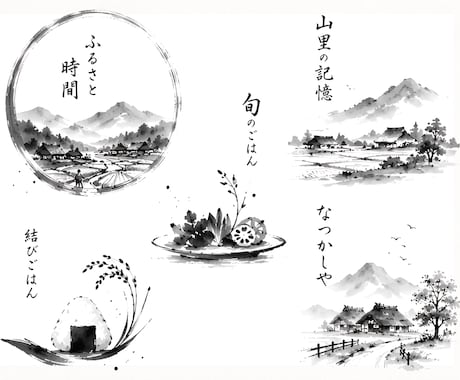 ふるさと
時間
旬のごはん
山里の記憶
結びごはん
なつかしや